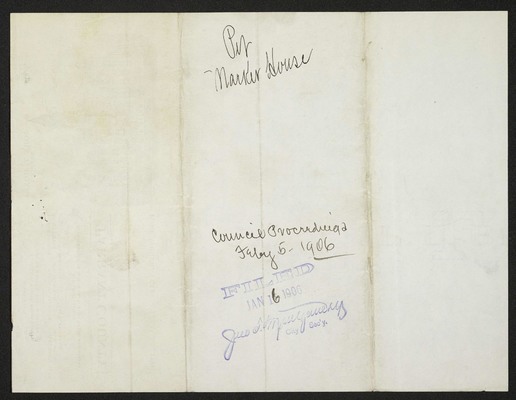 Pet
Market House
Council Proceedings
Feby 5 - 1906
FILED
JAN 16 1906
Jno. S. Montgomery